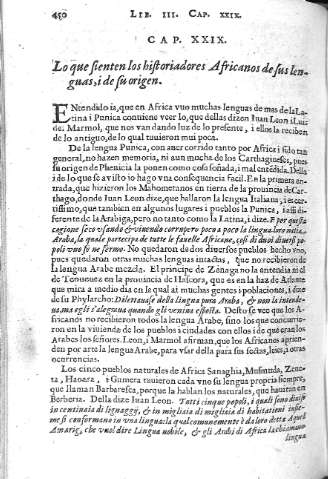 450 LIB. III. CAP. XXIX.
CAP. XXIX.
Lo que sienten los historiadores Africanos de sus len-
guas, i de su origen.
ENtendido ia, que en Africa vuo muchas lenguas de mas de la La-
tina i Punica contiene veer lo, que dellas dizen Iuan Leon i Luis
del Marmol, que nos van dando luz de lo presente, i ellos la reciben
de lo antiguo, de lo qual tuuieron mui poca.
De la lengua Punica, con auer corrido tanto por Africa i sido tan
general, no hazen memoria, ni aun mucha de los Carthagineses, pues
su origen de Phenicia la ponen como cosa soñada, i mal entendida. Della
i de lo que se a visto io hago vna consequencia facil. En la primera en-
trada, que hizieron los Mahometanos en tierra de la prouincia de Car-
thago, donde Iuan Leon dize, que hallaron la lengua Italiana, i es cer-
tissimo, que tambien en algunos lugares i pueblos la Punica, i assi di-
ferente de la Arabiga, pero no tanto como la Latina, i dize. E per questa
cagione seco vsando & viuendo corruppero poco a poco la lingua loro nitiua
Araba, la quale participo de tutte le fauelle Africane, cosi di duoi diuersi po-
poli vno si ne fermo. No quedaron de dos diuersos pueblos hecho vno,
pues quedaron otras muchas lenguas intactas, que no recibieron de
la lengua Arabe mezcla. El principe de Zenaga no la entendia ni el
de Tensita en la prouincia de Hascora, que es en las haldas de Atlante
que mira a medio dia en la qual ai muchas gentes i poblaciones, i dize
de su Phylarcho: Dilettauase della lingua pura Araba, & non la intende-
ua, ma egli s'alegraua quando gli veniua esposta. Desto se vee que los A-
fricanos no recibieron todos la lengua Arabe, sino los que concurrie-
ron en la viuienda de los pueblos i ciudades con ellos i de que eran los
Arabes los señores. Leon, i Marmol afirman, que los Africanos apren-
den por arte la lengua Arabe, para vsar della para sus sectas, leies, i otras
ocurrencias.
Los cinco pueblos naturales de Africa Sanaghia, Musmuda, Zene-
ta, Haoara, i Gumera tuuieron cada vno su lengua propria siempre,
que llaman Barbaresca, porque la hablan los naturales, que habitan en
Berberia. Della dize Iuan Leon. Tutti cinque popoli, i quali sono diuisi
in centinaia di lignaggi, & in migliaia di migliaia di habitationi insie-
me si conformano in vna lingua: la qual comunemente è da loro detta Aquel
Amarig, che vuol dire Lingua nobile, & gli Arabi di Africa la chiamano
lingua